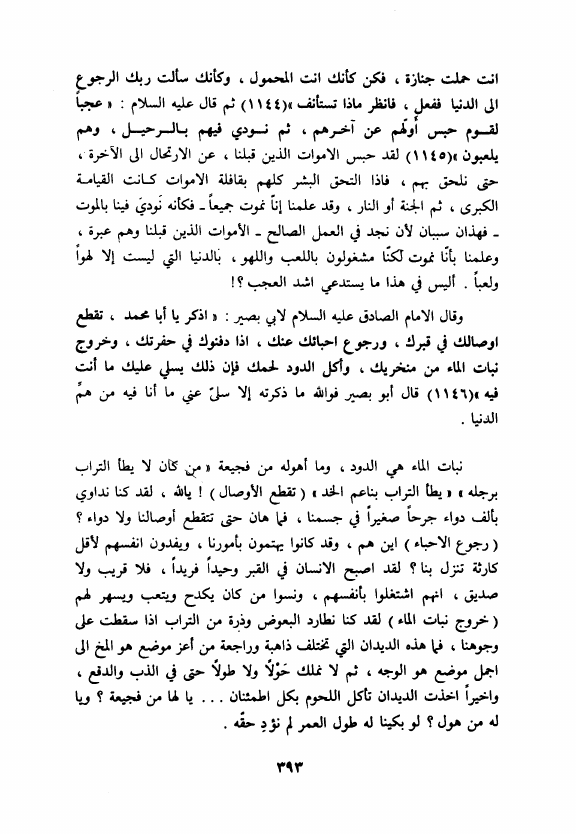 انت حملت جنازة ، فكن كأنك انت المحمول ، وكأنك سألت ربك الرجوع
الى الدنيا ففعل ، فانظر ماذا تستأنف »(١١٤٤) ثم قال عليه السلام : « عجباً
لقـوم حبس أولهم عن آخـرهم ، ثم نـودي فيهم بـالـرحيـل ، وهم
يلعبون »(١١٤٥) لقد حبس الاموات الذين قبلنا ، عن الارتحال الى الآخرة ،
حتى نلحق بهم ، فاذا التحق البشر كلهم بقافلة الاموات كـانت القيامـة
الكبرى ، ثم الجنة أو النار ، وقد علمنا إنّا نموت جميعاً ـ فكأنه نودي فينا بالموت
ـ فهذان سببان لأن نجد في العمل الصالح ـ الأموات الذين قبلنا وهم عبرة ،
وعلمنا بأنّا نموت لكنّا مشغولون باللعب واللهو ، بالدنيا التي ليست إلا لهواً
ولعباً . أليس في هذا ما يستدعي اشد العجب ؟!
وقال الامام الصادق عليه السلام لابي بصير : « اذكر يا أبا محمد ، تقطع
اوصالك في قبرك ، ورجوع احبائك عنك ، اذا دفنوك في حفرتك ، وخروج
نبات الماء من منخريك ، وأكل الدود لحمك فإن ذلك يسلي عليك ما أنت
فيه »(١١٤٦) قال أبو بصير فوالله ما ذكرته إلا سلىّ عني ما أنا فيه من همِّ
الدنيا .
نبات الماء هي الدود ، وما أهوله من فجيعة « من كان لا يطأ التراب
برجله » « يطأ التراب بناعم الخد » ( تقطع الأوصال ) ! يالله ، لقد كنا نداوي
بألف دواء جرحاً صغيراً في جسمنا ، فما هان حتى تتقطع أوصالنا ولا دواء ؟
( رجوع الاحباء ) اين هم ، وقد كانوا يهتمون بأمورنا ، ويفدون انفسهم لأقل
كارثة تنزل بنا ؟ لقد اصبح الانسان في القبر وحيداً فريداً ، فلا قريب ولا
صديق ، انهم اشتغلوا بأنفسهم ، ونسوا من كان يكدح ويتعب ويسهر لهم
( خروج نبات الماء ) لقد كنا نطارد البعوض وذرة من التراب اذا سقطت على
وجوهنا ، فما هذه الديدان التي تختلف ذاهبة وراجعة من أعز موضع هو المخ الى
اجمل موضع هو الوجه ، ثم لا نملك حَوْلًا ولا طولًا حتى في الذب والدفع ،
واخيراً اخذت الديدان تأكل اللحوم بكل اطمئنان ... يا لها من فجيعة ؟ ويا
له من هول ؟ لو بكينا له طول العمر لم نؤدِ حقّه .
٣٩٣